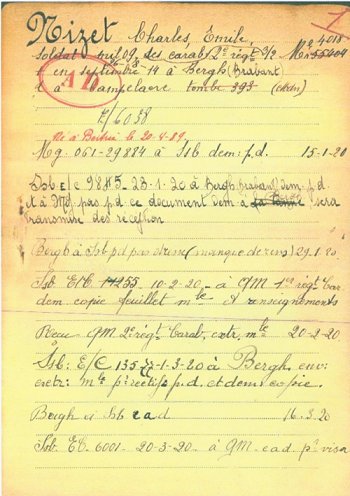 Nizet Charles, Emile,
Soldat mil 09, des carab. 2e régt 3/2 Mle 55404
4018
+ en septembre 14 à Bergh (Brabant)
à Pampelaere tombe 393
E/6038
Né à 20-4-89.
Mg. 061-29884 à Ssb dem. p.d. 15-1-20
Ssb E/C 9885. 23-1-20 à Bergh (Brabant) dem. p.d.
et à Mg pas p.d. ce document dem. à sera
transmise dès réception
Bergh à Ssb pd pas (manque de zinc) 29.1.20
Ssb E/C 14255 10-2-20 - à QM 1er régt Car
dem. copie feuillet mle et renseignements
Reau QM 2e régt Carab. extr. mle 20-2-20
Ssb: E/C 135 -1-3-20 à Bergh. env:
extr: mle pr rectif. p.d. et dem: copie.
Bergh à Ssb c a d 16.3.20
Ssb EC 6001 - 20-3-20 - à QM c a d pr visa